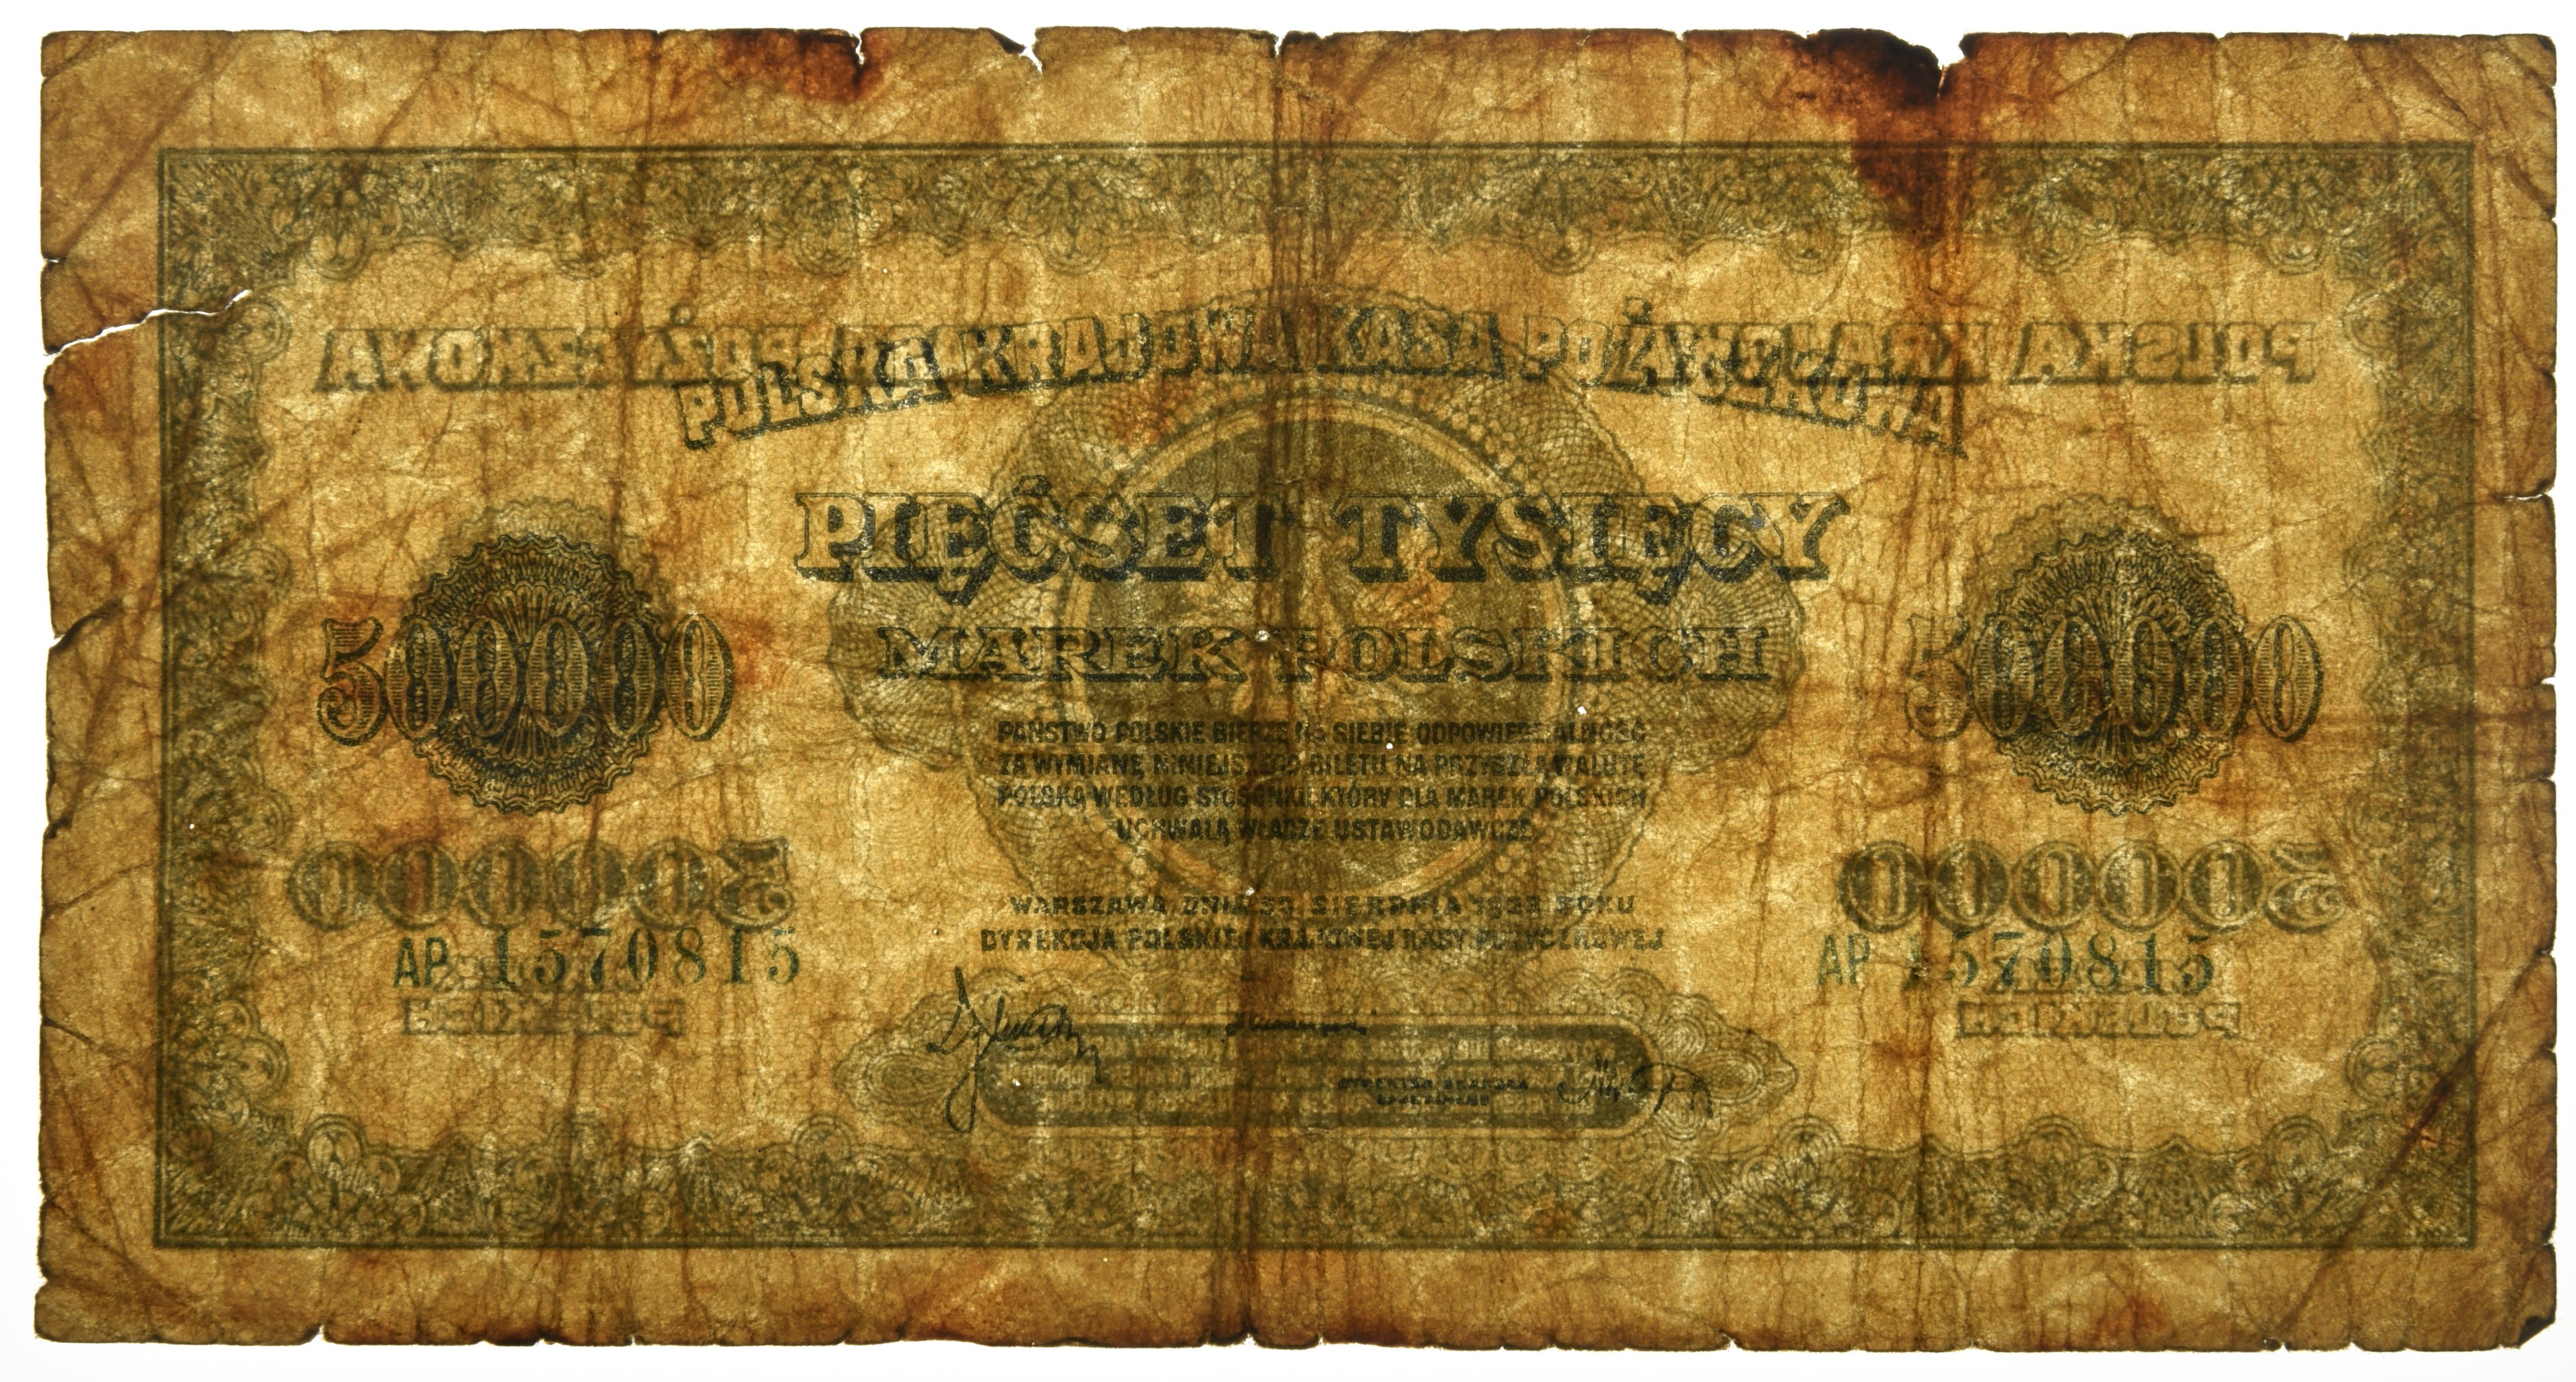 POLSKA KRAJOWA KASA POŻYCZKOWA
POLSKA KRAJOWA KASA POŻYCZKOWA
PIĘĆSET TYSIĘCY
MAREK POLSKICH
500000
500000
PAŃSTWO POLSKIE BIERZE NA SIEBIE ODPOWIEDZIALNOŚĆ
ZA WYMIANĘ NINIEJSZEGO BILETU NA PRZYSZŁĄ WALUTĘ
POLSKĄ WEDŁUG STOSUNKU, KTÓRY DLA MAREK POLSKICH
UCHWALĄ WŁADZE USTAWODAWCZE
500000
500000
WARSZAWA DNIA 30 SIERPNIA 1923 ROKU
DYREKCJA POLSKIEJ KRAJOWEJ KASY POŻYCZKOWEJ
AP 1570815
AP 1570815
POLSKICH
POLSKICH